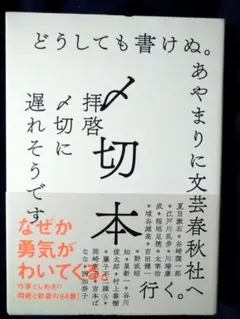 どうしても書けぬ。
あやまりに文芸春秋社へ
行く。
〆切本
拝啓
〆切に
遅れそうです
夏目漱石＊谷崎潤一郎
＊江戸川乱歩＊川端康
成＊稲垣足穂＊太宰治
＊埴谷雄高＊吉田健一
＊野坂昭
如＊星新一＊谷川
俊太郎＊村上春樹
＊藤子不二雄Ⓐ＊
岡崎京子＊吉本ば
なな＊西加奈子
なぜか
勇気が
わいてくる。
仕事としめきり
問術と新書の94篇!